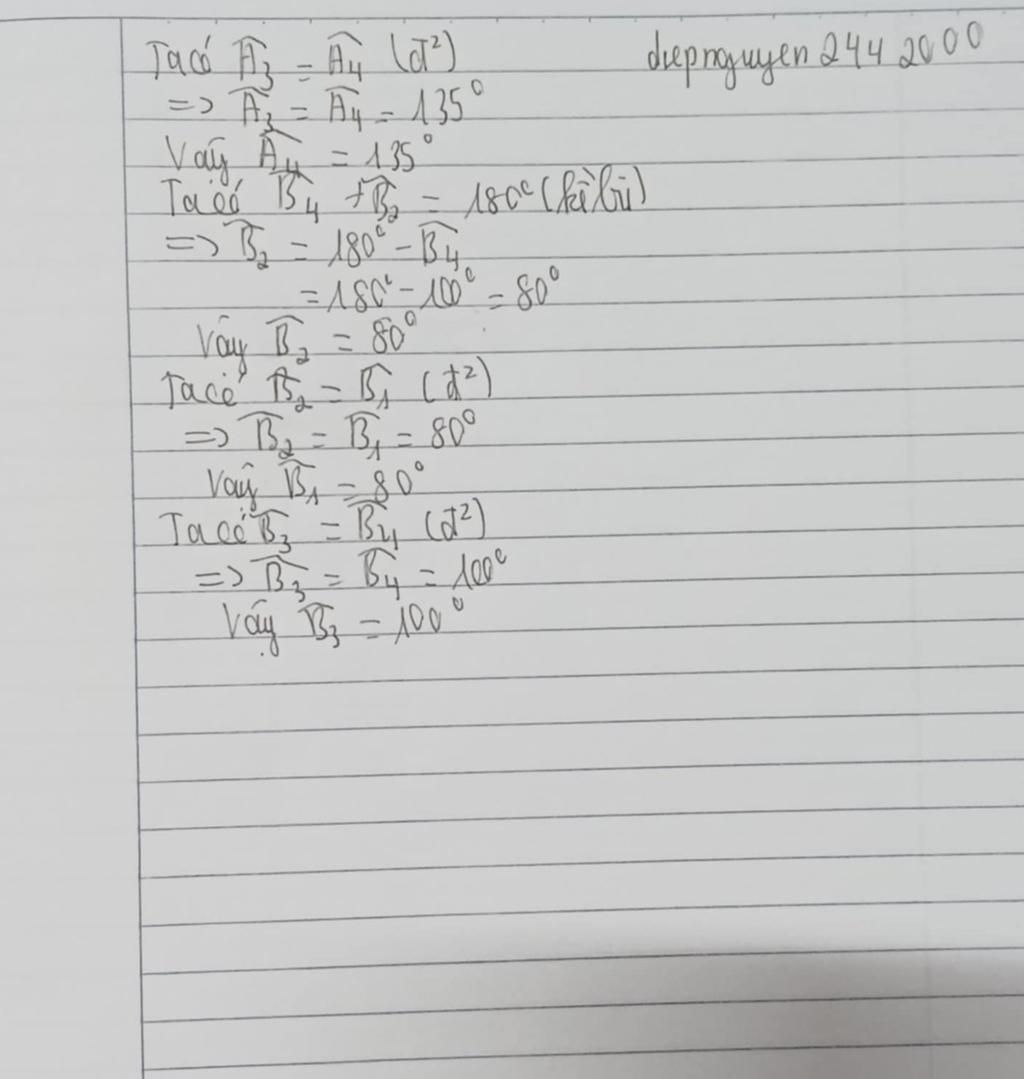 Ta có Â₃ = Â₄ (đ²) diepnguyen 244 2000
=> Â₃ = Â₄ = 135°
Vậy Â₄ = 135°
Ta có B̂₄ + B̂₂ = 180° (kề bù)
=> B̂₂ = 180° - B̂₄
= 180° - 100° = 80°
Vậy B̂₂ = 80°
Ta có B̂₂ = B̂₁ (đ²)
=> B̂₂ = B̂₁ = 80°
Vậy B̂₁ = 80°
Ta có B̂₃ = B̂₄ (đ²)
=> B̂₃ = B̂₄ = 100°
Vậy B̂₃ = 100°